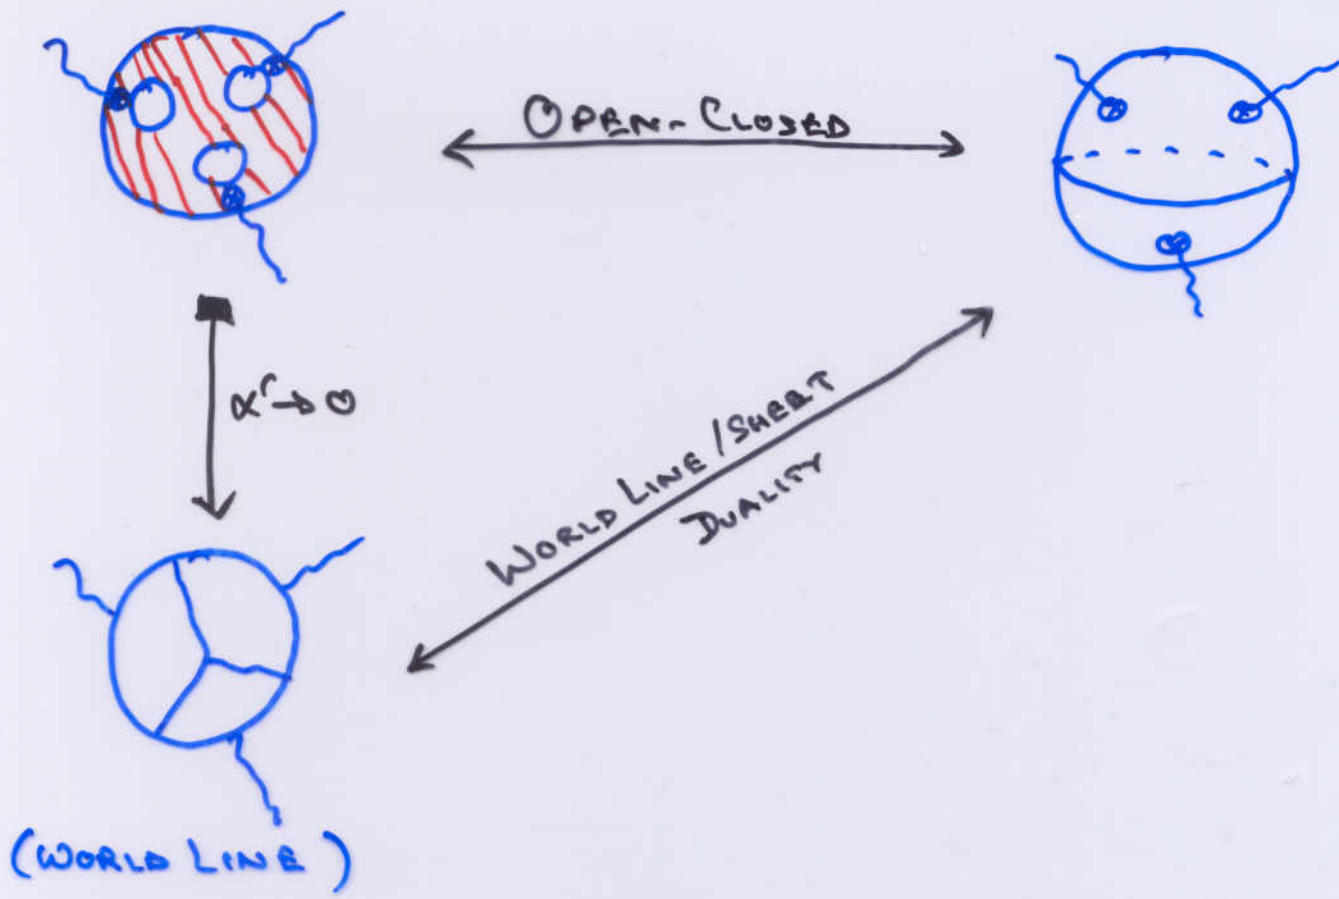 OPEN-CLOSED
α'→0
WORLD LINE/SHEET
DUALITY
(WORLD LINE)